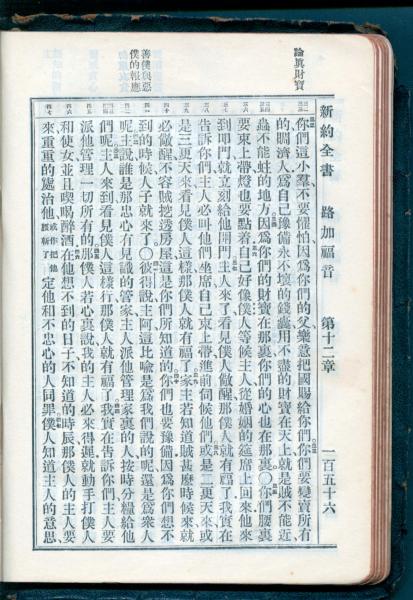 新約全書 路加福音 第十二章 一百五十六
論眞財寶
你們這小羣、不要懼怕、因爲你們的父樂意把國賜給你們、你們要變賣所有
的賙濟人、爲自己豫備永不壞的錢囊、用不盡的財寶在天上、就是賊不能近
蟲不能蛀的地方、因爲你們的財寶在那裏、你們的心也在那裏○你們腰裏
要束上帶、燈也要點着、自己好像僕人等候主人、從婚姻的筵席上回來、他來
到叩門、就立刻給他開門、主人來了、看見僕人儆醒、那僕人就有福了、我實在
告訴你們、主人必叫他們坐席、自己束上帶、進前伺候他們、或是二更天來、或
是三更天來、看見僕人這樣、那僕人就有福了、家主若知道賊甚麽時候來、就
必儆醒、不容賊挖透房屋、這是你們所知道的、你們也要豫備、因爲你們想不
到的時候、人子就來了○彼得說、主阿、這比喻是爲我們說的呢、還是爲衆人
善僕與惡
僕的報應
呢、主說、誰是那忠心有見識的管家、主人派他管理家裏的人、按時分糧給他
們呢、主人來到、看見僕人這樣行、那僕人就有福了、我實在告訴你們、主人要
派他管理一切所有的、那僕人若心裏說、我的主人必來得遲、就動手打僕人
和使女、並且喫喝醉酒、在他想不到的日子、不知道的時辰、那僕人的主人要
來、重重的處治他、或作把他腰斬了定他和不忠心的人同罪、僕人知道主人的意思